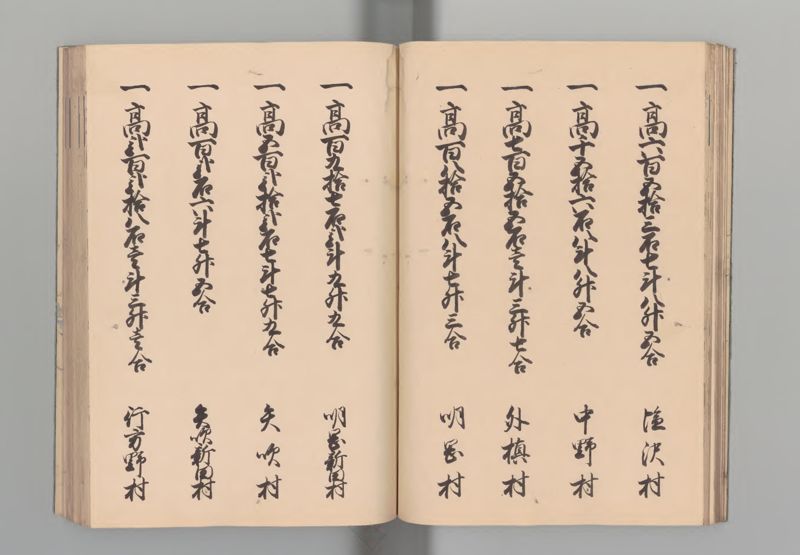 一高六百五拾三石七斗八升五合 塩沢村
一高千五拾六石八斗八升五合 中野村
一高七百五拾五石壱斗三升七合 外槙村
一高百八拾五石八斗七升三合 明岡村
一高百九拾七石弐斗九升九合 明岡新田村
一高五百弐拾弐石七斗七升九合 矢吹村
一高百弐石六斗七升五合 矢吹新田村
一高弐百弐拾八石壱斗三升壱合 行方野村